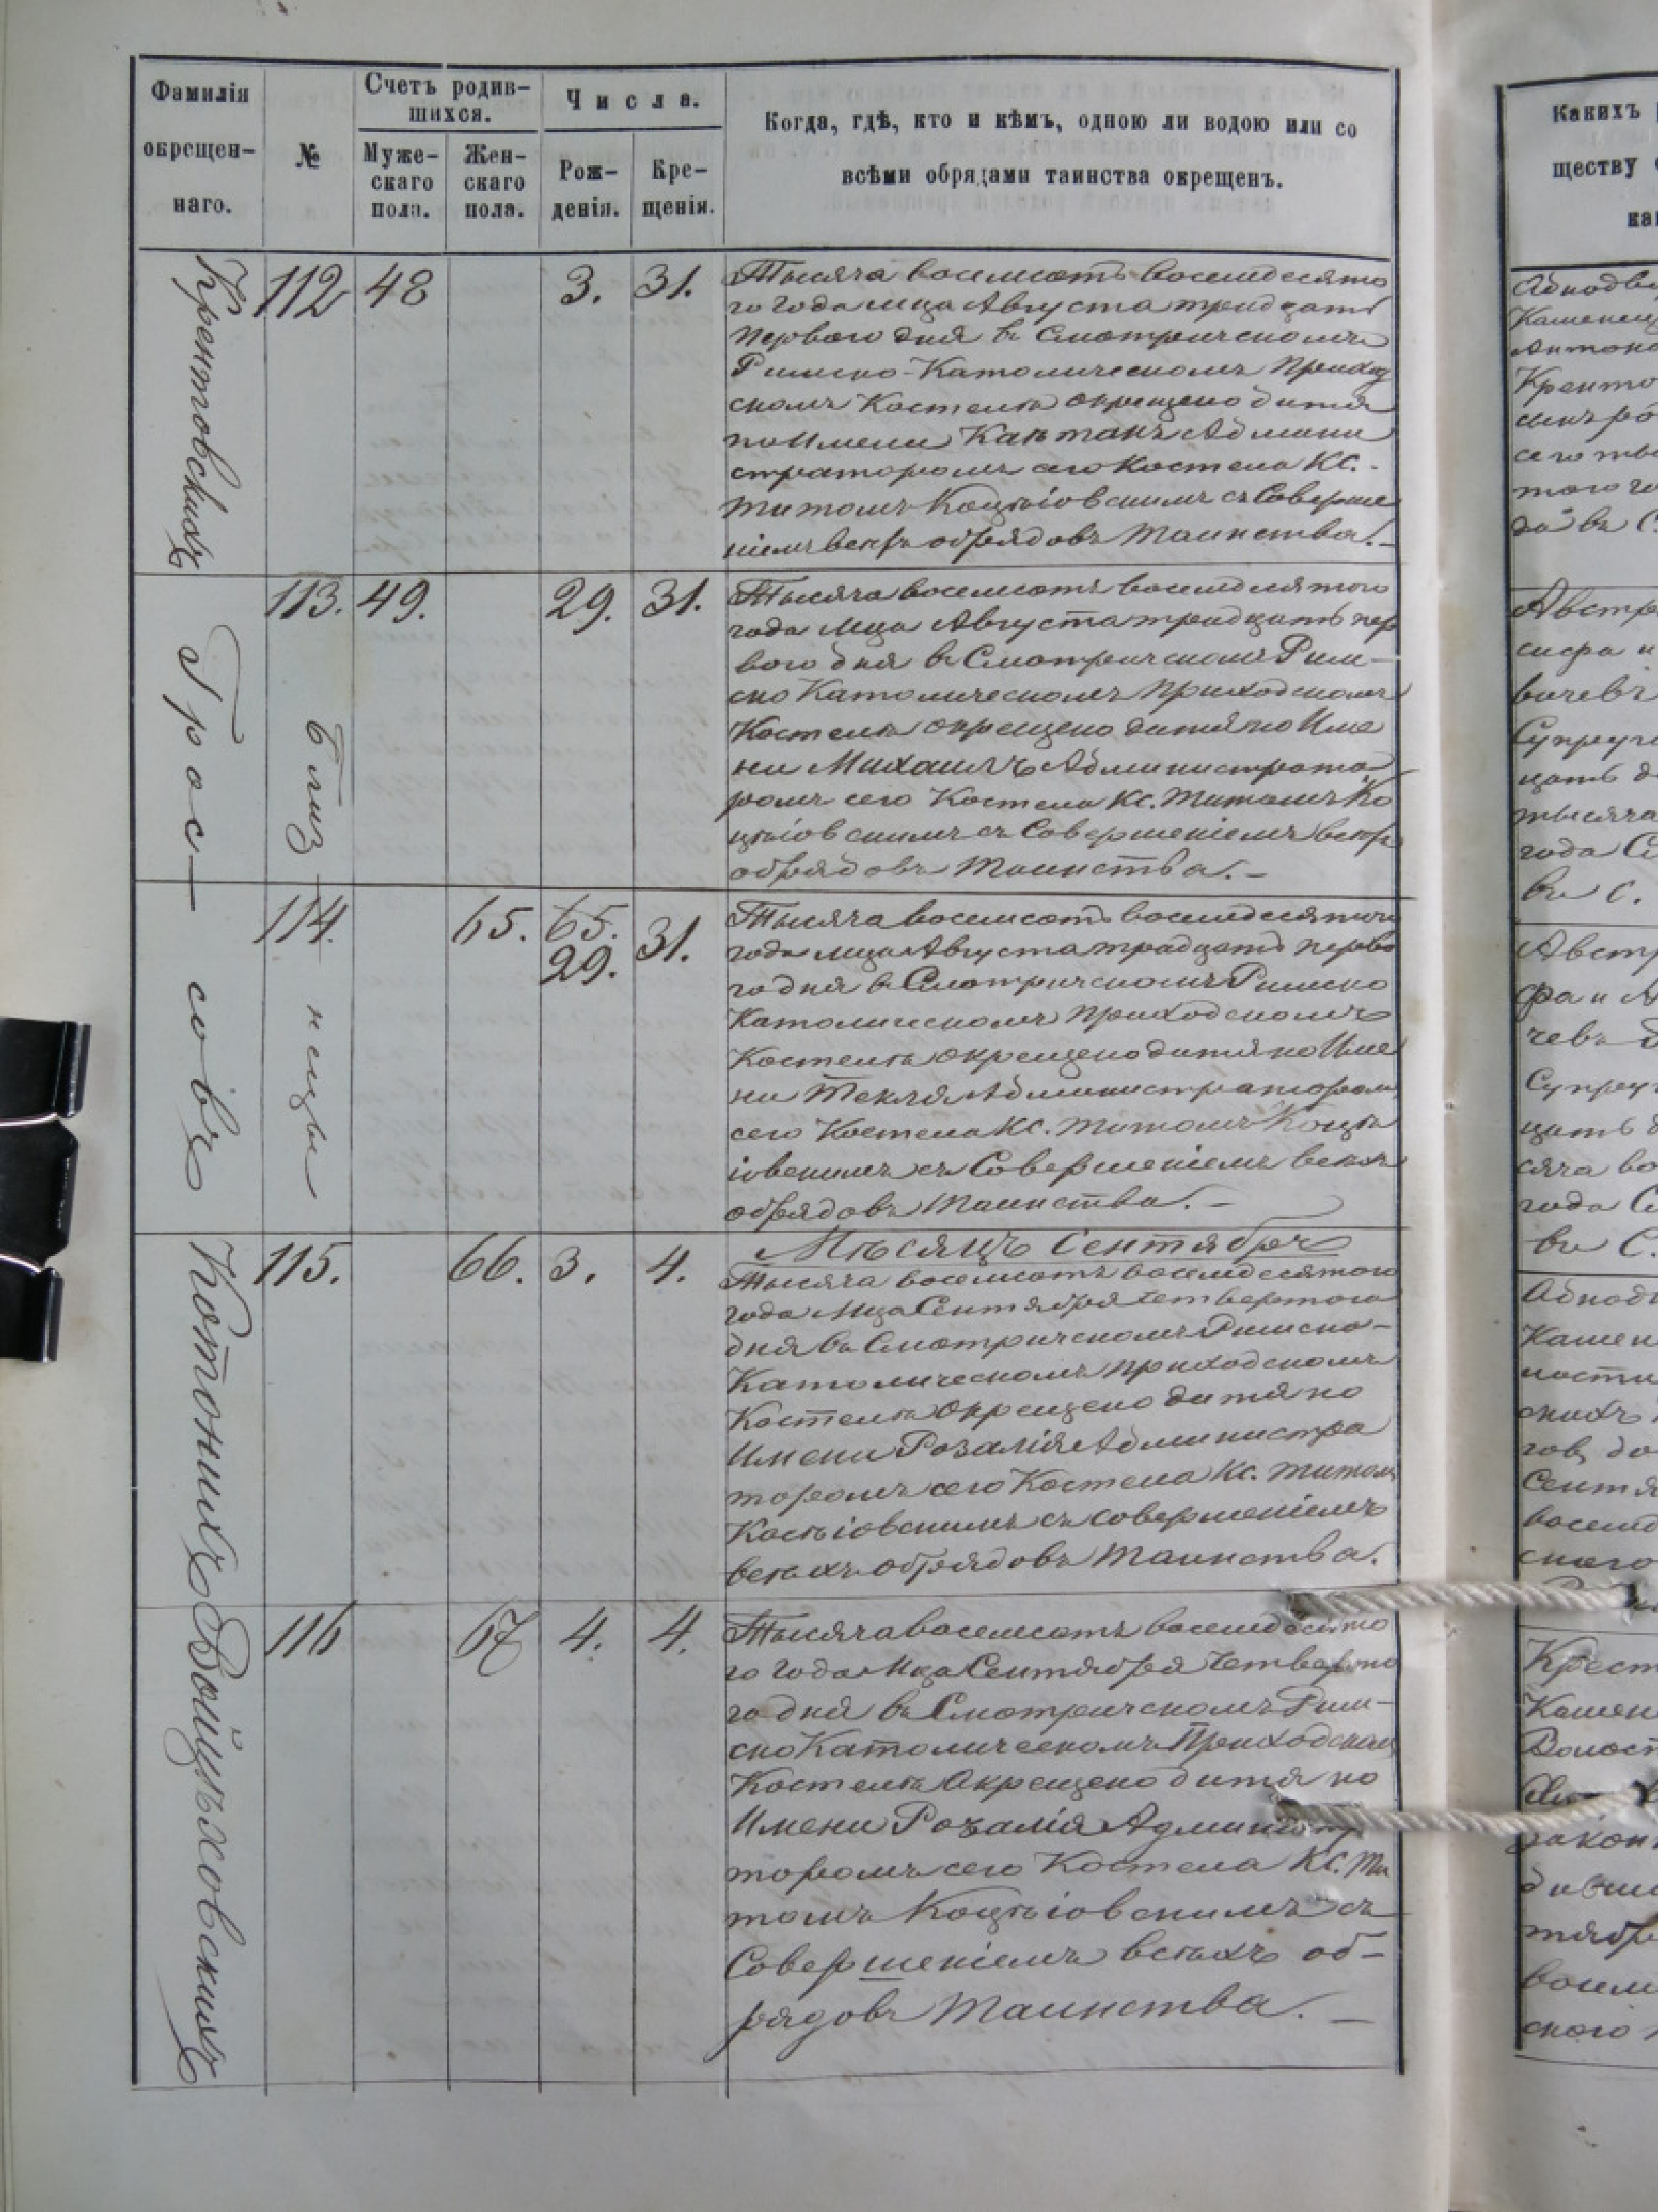 Фамилія
окрещен-
наго.
№
Счетъ родив-
шихся.
Муже-
скаго
пола.
Жен-
скаго
пола.
Числа.
Рож-
денія.
Кре-
щенія.
Когда, гдѣ, кто и кѣмъ, одною ли водою или со
всѣми обрядами таинства окрещенъ.
Каихъ
ществу
Крентовскихъ
112 48 3. 31.
Тысяча восемсотъ восемдесято
го года мца Августа тридцать
перваго дня въ Смотричскомъ
Римско-Католическомъ Приход
скомъ Костелѣ окрещено дитя
по Имени Каѣтанъ Админи
страторомъ сего Костела Кс.
Титомъ Коцѣіовскимъ съ Соверше
ніемъ всѣхъ обрядовъ Таинства.-
Грос-
совъ
Близ
нецы
113. 49. 29. 31.
Тысяча восемсотъ восемдесятого
года мца Августа тридцать пер
вого дня въ Смотричскомъ Рим-
ско Католическомъ приходскомъ
Костелѣ окрещено дитя по Име
ни Михаилъ Администрато
ромъ сего Костела Кс. Титомъ Ко
цѣіовскимъ съ Совершеніемъ всѣхъ
обрядовъ Таинства.-
114. 65. 65.
29. 31.
Тысяча восемсотъ восемдесятого
года мца Августа тридцать перво
го дня въ Смотричскомъ Римско
Католическомъ приходскомъ
Костелѣ окрещено дитя по Име
ни Текля Администраторомъ
сего Костела Кс. Титомъ Коцѣ
іовскимъ съ Совершеніемъ всѣхъ
обрядовъ Таинства.-
Котонихъ
Мѣсяцъ Сентябрь
115. 66. 3. 4.
Тысяча восемсотъ восемдесятого
года Мца Сентября Четвертого
дня въ Смотричскомъ Римско-
Католическомъ приходскомъ
Костелѣ Окрещено дитя по
Имени Розалія Администра
торомъ сего Костела Кс. Титомъ
Коцѣіовскимъ съ совершеніемъ
всѣхъ обрядовъ Таинства.
Войцѣховскихъ
116 67 4. 4.
Тысяча восемсотъ восемдесято
го года Мца Сентября Четверто
го дня въ Смотричскомъ Рим-
ско Католическомъ Приходскомъ
Костелѣ Окрещено дитя по
Имени Розалія Администра
торомъ сего Костела Кс. Ти
томъ Коцѣіовскимъ съ
Совершеніемъ всѣхъ об-
рядовъ Таинства.-